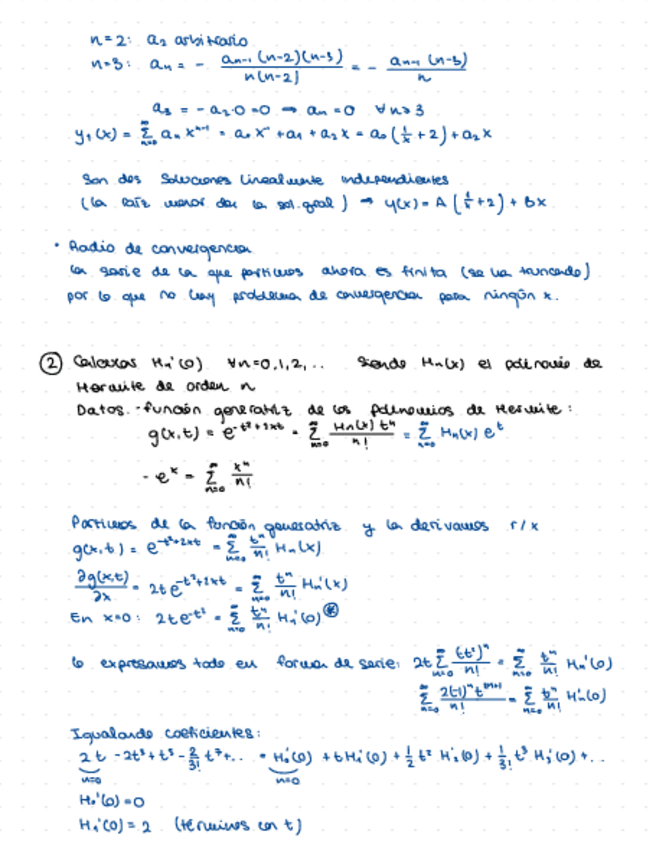 n=2: a₂ arbitrario
n=3: aₙ = - aₙ₋₁ (n-2)(n-3) / n(n-2) = - aₙ₋₁ (n-3) / n
a₃ = - a₂·0 = 0 → aₙ = 0 ∀n≥3
y₁(x) = Σ_{n=0}^∞ aₙ xⁿ⁻¹ = a₀ x⁻¹ + a₁ + a₂ x = a₀ (1/x + 2) + a₂ x
Son dos soluciones linealmente independientes
(la raíz menor da la sol. gral) → y(x) = A (1/x + 2) + Bx
· Radio de convergencia
la serie de la que partimos ahora es finita (se ha truncado)
por lo que no hay problema de convergencia para ningún x.
② Calcular Hₙ'(0) ∀n=0,1,2,.. siendo Hₙ(x) el polinomio de
Hermite de orden n
Datos. - función generatriz de los polinomios de Hermite:
g(x,t) = e^{-t²+2xt} = Σ_{n=0}^∞ Hₙ(x) tⁿ / n! = Σ_{n=0}^∞ Hₙ(x) e^t
- eˣ = Σ_{n=0}^∞ xⁿ / n!
Partimos de la función generatriz y la derivamos r/x
g(x,t) = e^{-t²+2xt} = Σ_{n=0}^∞ tⁿ/n! Hₙ(x)
∂g(x,t)/∂x = 2t e^{-t²+2xt} = Σ_{n=0}^∞ tⁿ/n! Hₙ'(x)
En x=0: 2t e^{-t²} = Σ_{n=0}^∞ tⁿ/n! Hₙ'(0) ⊛
lo expresamos todo en forma de serie: 2t Σ_{n=0}^∞ (-t²)ⁿ / n! = Σ_{n=0}^∞ tⁿ/n! Hₙ'(0)
Σ_{n=0}^∞ 2(-1)ⁿ t^{2n+1} / n! = Σ_{n=0}^∞ tⁿ/n! Hₙ'(0)
Igualando coeficientes:
2t - 2t³ + t⁵ - 2/3! t⁷ + .. = H₀'(0) + t H₁'(0) + 1/2 t² H₂'(0) + 1/3! t³ H₃'(0) + ..
n=0 n=0
H₀'(0) = 0
H₁'(0) = 2 (términos con t)